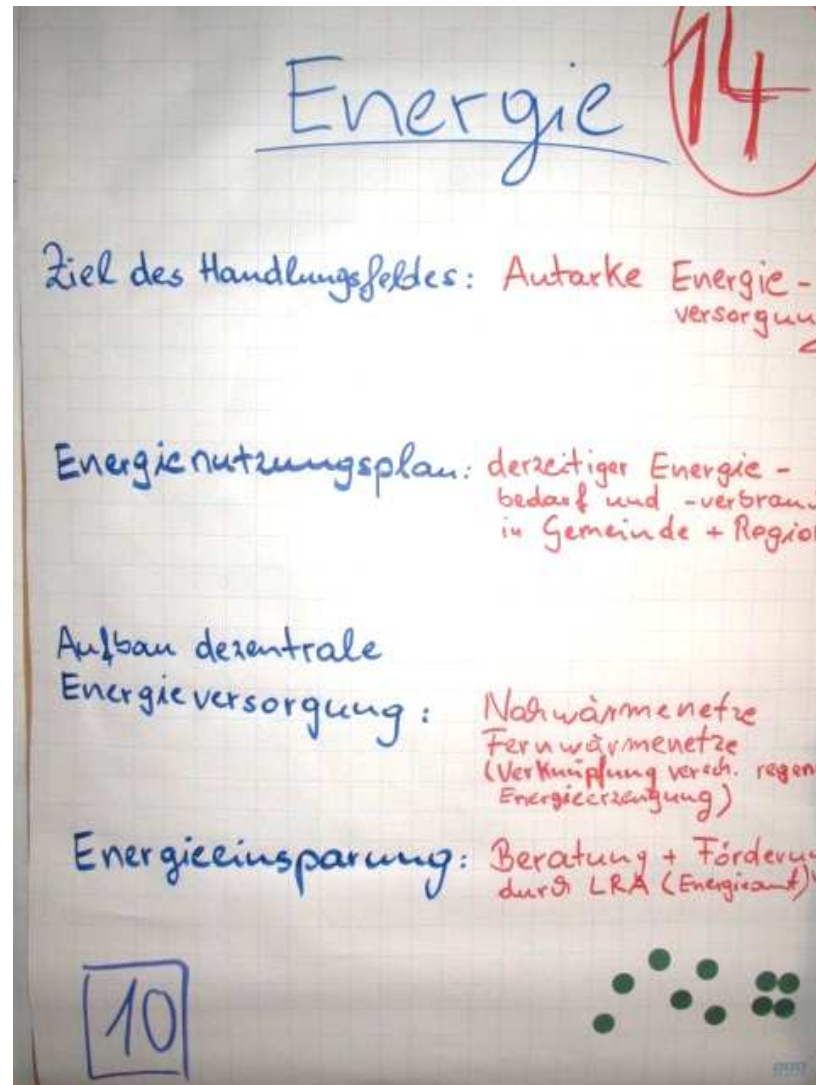 Energie 14
Ziel des Handlungsfeldes: Autarke Energie-
versorgun
Energienutzungsplan: derzeitiger Energie-
bedarf und -verbrau
in Gemeinde + Region
Aufbau dezentrale
Energieversorgung: Nahwärmenetze
Fernwärmenetze
(Verknüpfung versch. regen
Energieerzeugung)
Energieeinsparung: Beratung + Förderun
durch LRA (Energieamt)
10